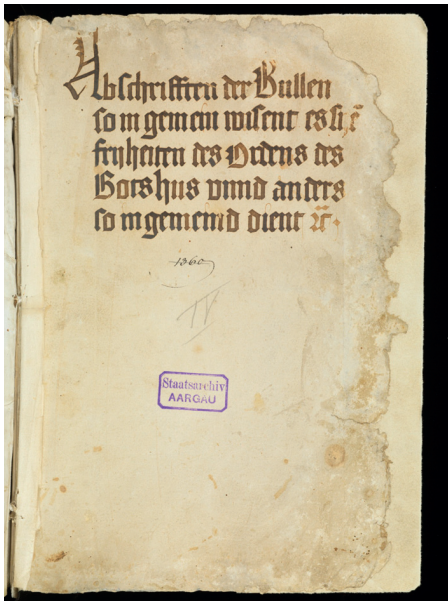 Abschrifften der Bullen
so in gemein wisent es si, ē
fryheiten des Ordens des
Gotshus vnnd anders
so in gemeind dient ⁊c̃.
1360
IV
Staatsarchiv
AARGAU